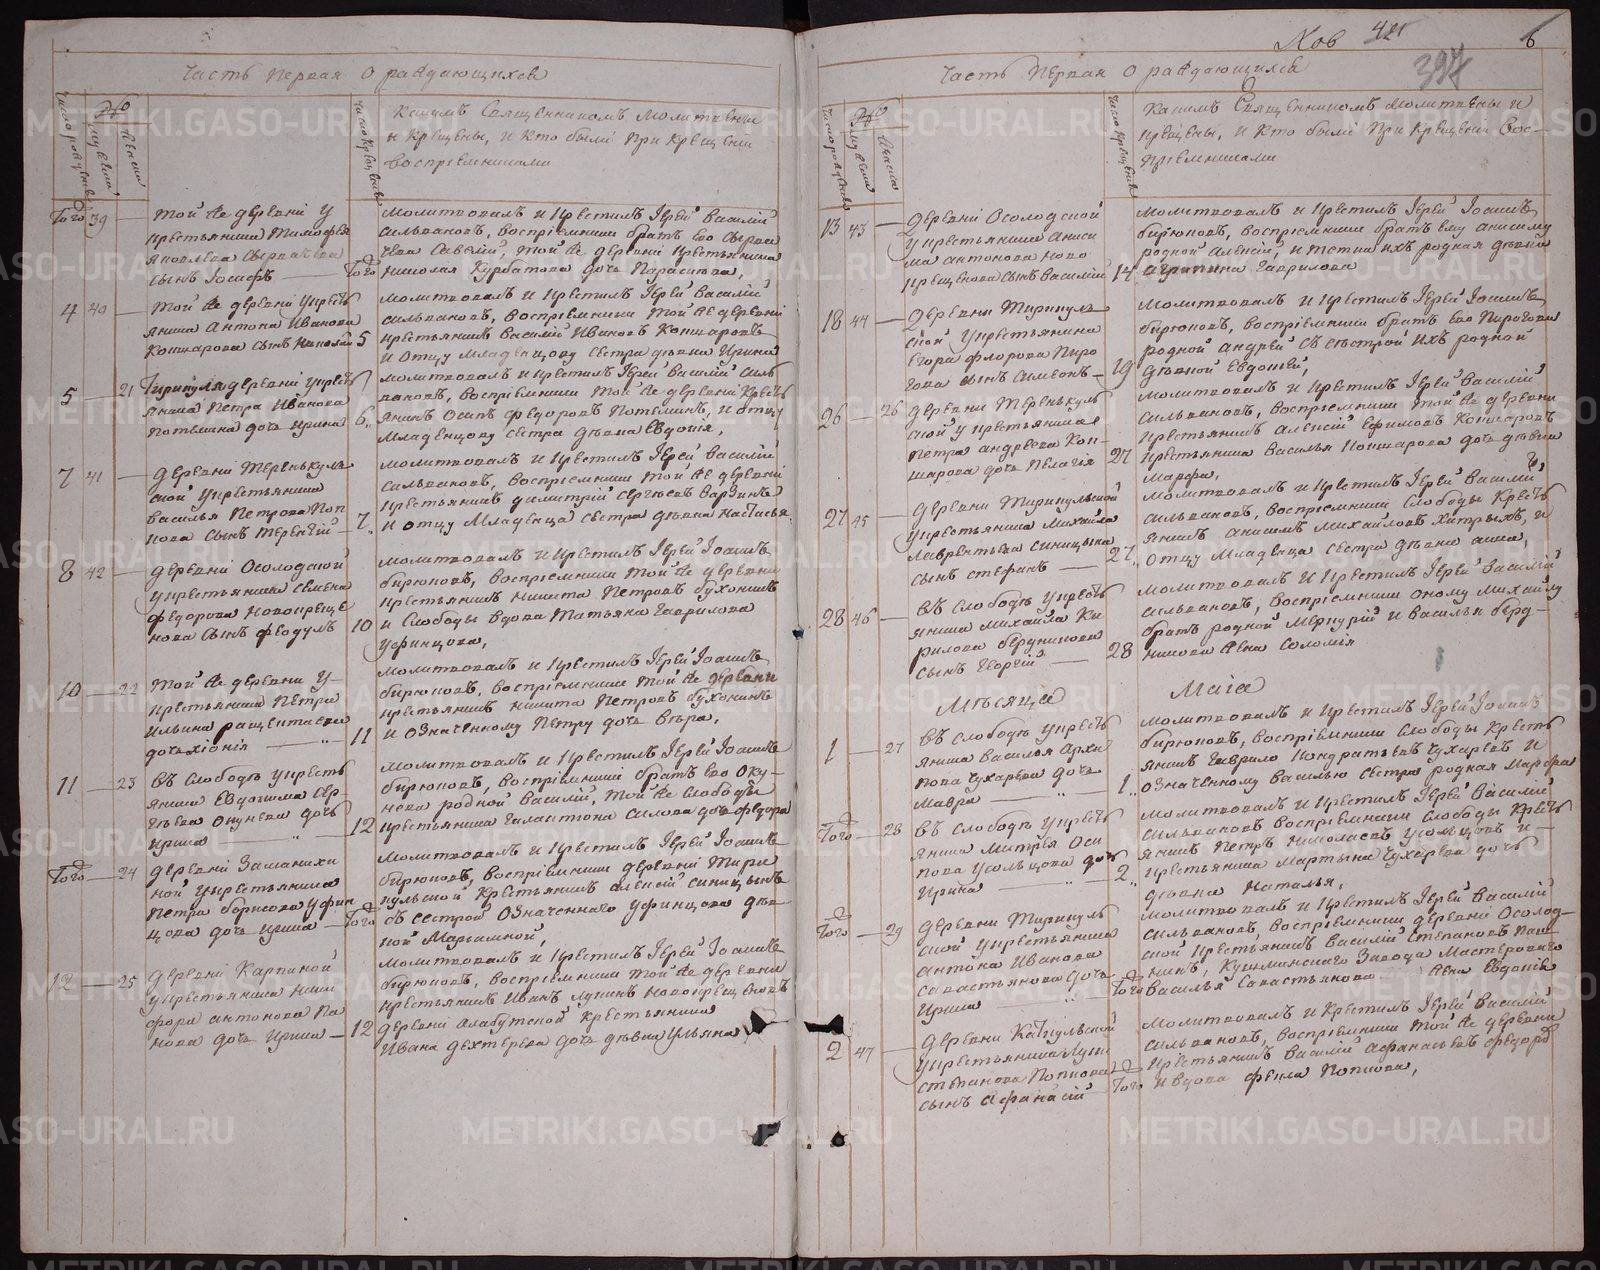 Часть Первая О раждающихся
Число рождения
№
Мужеска
Женска
Число крещения
Какимъ Священникомъ Молитвены
и Крещены, и Кто были При Крещеніи
Воспріемниками
Того 39
Той же деревни у
крестьянина Тимофея
Яковлева
сынъ Іосифъ
Того
Молитвовалъ и Крестилъ Іерей Василій
Сильвановъ, Воспріемники братъ Его
Савелій, Той же деревни Крестьянина
Николая Курбатова дочь Параскева,
4 40
Той же деревни у кресть
янина Антона Иванова
Кошкарова сынъ Николай 5
Молитвовалъ и Крестилъ Іерей Василій
Сильвановъ, Воспріемники Той же деревни
крестьянинъ Василій Ивановъ Кошкаровъ
и Отцу Младенцову Сестра девка Ирина
5 21
деревни у кресть
янина Петра Иванова
Потемина дочь Ирина 6
Молитвовалъ и Крестилъ Іерей Василій Силь
вановъ, Воспріемники Той же деревни Кресть
янинъ Осипъ Федоровъ Потеминъ, и отцу
Младенцову Сестра девка Евдокія,
7 41
Деревни Теренкуль
ской у крестьянина
Василья Петрова Поп
кова сынъ Терентій 7
Молитвовалъ и Крестилъ Іерей Василій
Сильвановъ, Воспріемники Той же деревни
крестьянинъ Димитрій Сергеевъ
и отцу Младенца Сестра девка Настасья
8 42
Деревни Осолодской
у крестьянина Семена
Федорова Новокреще
нова сынъ Феодулъ 10
Молитвовалъ и Крестилъ Іерей Іоаннъ
Бирюковъ, Воспріемники Той же деревни
крестьянинъ Никита Петровъ Бухонинъ
и Слободы Вдова Татьяна Гаврилова
Уфинцова,
10 22
Той же деревни у
крестьянина Петра
Ильина
дочь Хіонія 11
Молитвовалъ и Крестилъ Іерей Іоаннъ
Бирюковъ, Воспріемники Той же деревни
крестьянинъ Никита Петровъ Бухонинъ
и Означенному Петру дочь Вера,
11 23
Въ Слободе у кресть
янина Евдокима Сер
геева Окунева дочь
Ирина 12
Молитвовалъ и Крестилъ Іерей Іоаннъ
Бирюковъ, Воспріемники братъ Его Оку
нева родной Василій, Той же Слободы
крестьянина Галактіона Силова дочь Федора
Того 24
Деревни
ной у крестьянина
Петра Борисова Уфин
цова дочь Ирина Того
Молитвовалъ и Крестилъ Іерей Іоаннъ
Бирюковъ, Воспріемники деревни Тири
кульской Крестьянинъ Алексей Синицынъ
съ Сестрой Означеннаго Уфинцова дев
кой Марьямной,
12 25
Деревни Карпиной
у крестьянина Ники
фора Антонова Па
нова дочь Ирина 12
Молитвовалъ и Крестилъ Іерей Іоаннъ
Бирюковъ, Воспріемники Той же деревни
крестьянинъ Иванъ Лукинъ Новокрещеновъ
деревни Алабугской Крестьянина
Ивана Дехтерева дочь девка Ульяна
Часть Первая О раждающихся
6
397
Число рождения
№
Мужеска
Женска
Число крещения
Какимъ Священникомъ Молитвены и
крещены, и Кто были При Крещеніи Вос
пріемниками
13 43
Деревни Осолодской
у крестьянина Аниси
ма Антонова Ново
крещенова сынъ Василій 14
Молитвовалъ и Крестилъ Іерей Іоаннъ
Бирюковъ, Воспріемники братъ ему Анисиму
родной Алексей, и тетка ихъ родная девка
Агрипина Гаврилова
18 44
Деревни Тирикуль
ской у крестьянина
Егора Флорова Пиро
гова сынъ Симеонъ 19
Молитвовалъ и Крестилъ Іерей Іоаннъ
Бирюковъ, Воспріемники братъ Его Пирогова
родной Андрей съ сестрой Ихъ родной
девкой Евдокией,
26 26
Деревни Теренкуль
ской у крестьянина
Петра Андреева Кош
карова дочь Пелагія 27
Молитвовалъ и Крестилъ Іерей Василій
Сильвановъ, Воспріемники Той же деревни
крестьянинъ Алексей Ефимовъ Кошкаровъ
крестьянина Василья Кошкарова дочь девка
Марфа,
27 45
Деревни Тирикульской
у крестьянина Михайла
Лаврентьева Синицына
сынъ Стефанъ 27
Молитвовалъ и Крестилъ Іерей Василій
Сильвановъ, Воспріемники Слободы Кресть
янинъ Анисимъ Михайловъ Хитрыхъ, и
Отцу Младенца Сестра девка Анна,
28 46
Въ Слободе у кресть
янина Михайла Ки
рилова Бердникова
сынъ Георгій 28
Молитвовалъ и Крестилъ Іерей Василій
Сильвановъ, Воспріемники Оному Михайлу
братъ родной Меркурій и Василья Берд
никова жена Соломія
Месяца Маіа
1 27
Въ Слободе у кресть
янина Василья Архи
пова Чухарева дочь
Мавра 1
Молитвовалъ и Крестилъ Іерей Іоаннъ
Бирюковъ, Воспріемники Слободы Кресть
янинъ Гаврило Кондратьевъ Чухаревъ и
Означенному Василью Сестра родная Марфа
Того 28
Въ Слободе у кресть
янина Митрея Оси
пова Усольцова дочь
Ирина 2
Молитвовалъ и Крестилъ Іерей Василій
Сильвановъ Воспріемники Слободы Кресть
янинъ Петръ Николаевъ Усольцовъ и
крестьянина Мартына Чухарева дочь
девка Наталья,
Того 29
Деревни Тирикуль
ской у крестьянина
Антона Иванова
Савастьянова дочь
Ирина Того
Молитвовалъ и Крестилъ Іерей Василій
Сильвановъ, Воспріемники деревни Осолод
ской Крестьянинъ Василій Степановъ
Завода Мастероваго
Василья Савастьянова жена Евдокія
2 47
Деревни Качкульской
у крестьянина Луки
Степанова Попкова
сынъ Афанасій Того
Молитвовалъ и Крестилъ Іерей Василій
Сильвановъ, Воспріемники Той же деревни
крестьянинъ Василій Афанасьевъ
и вдова Фекла Попкова,
METRIKI.GASO-URAL.RU